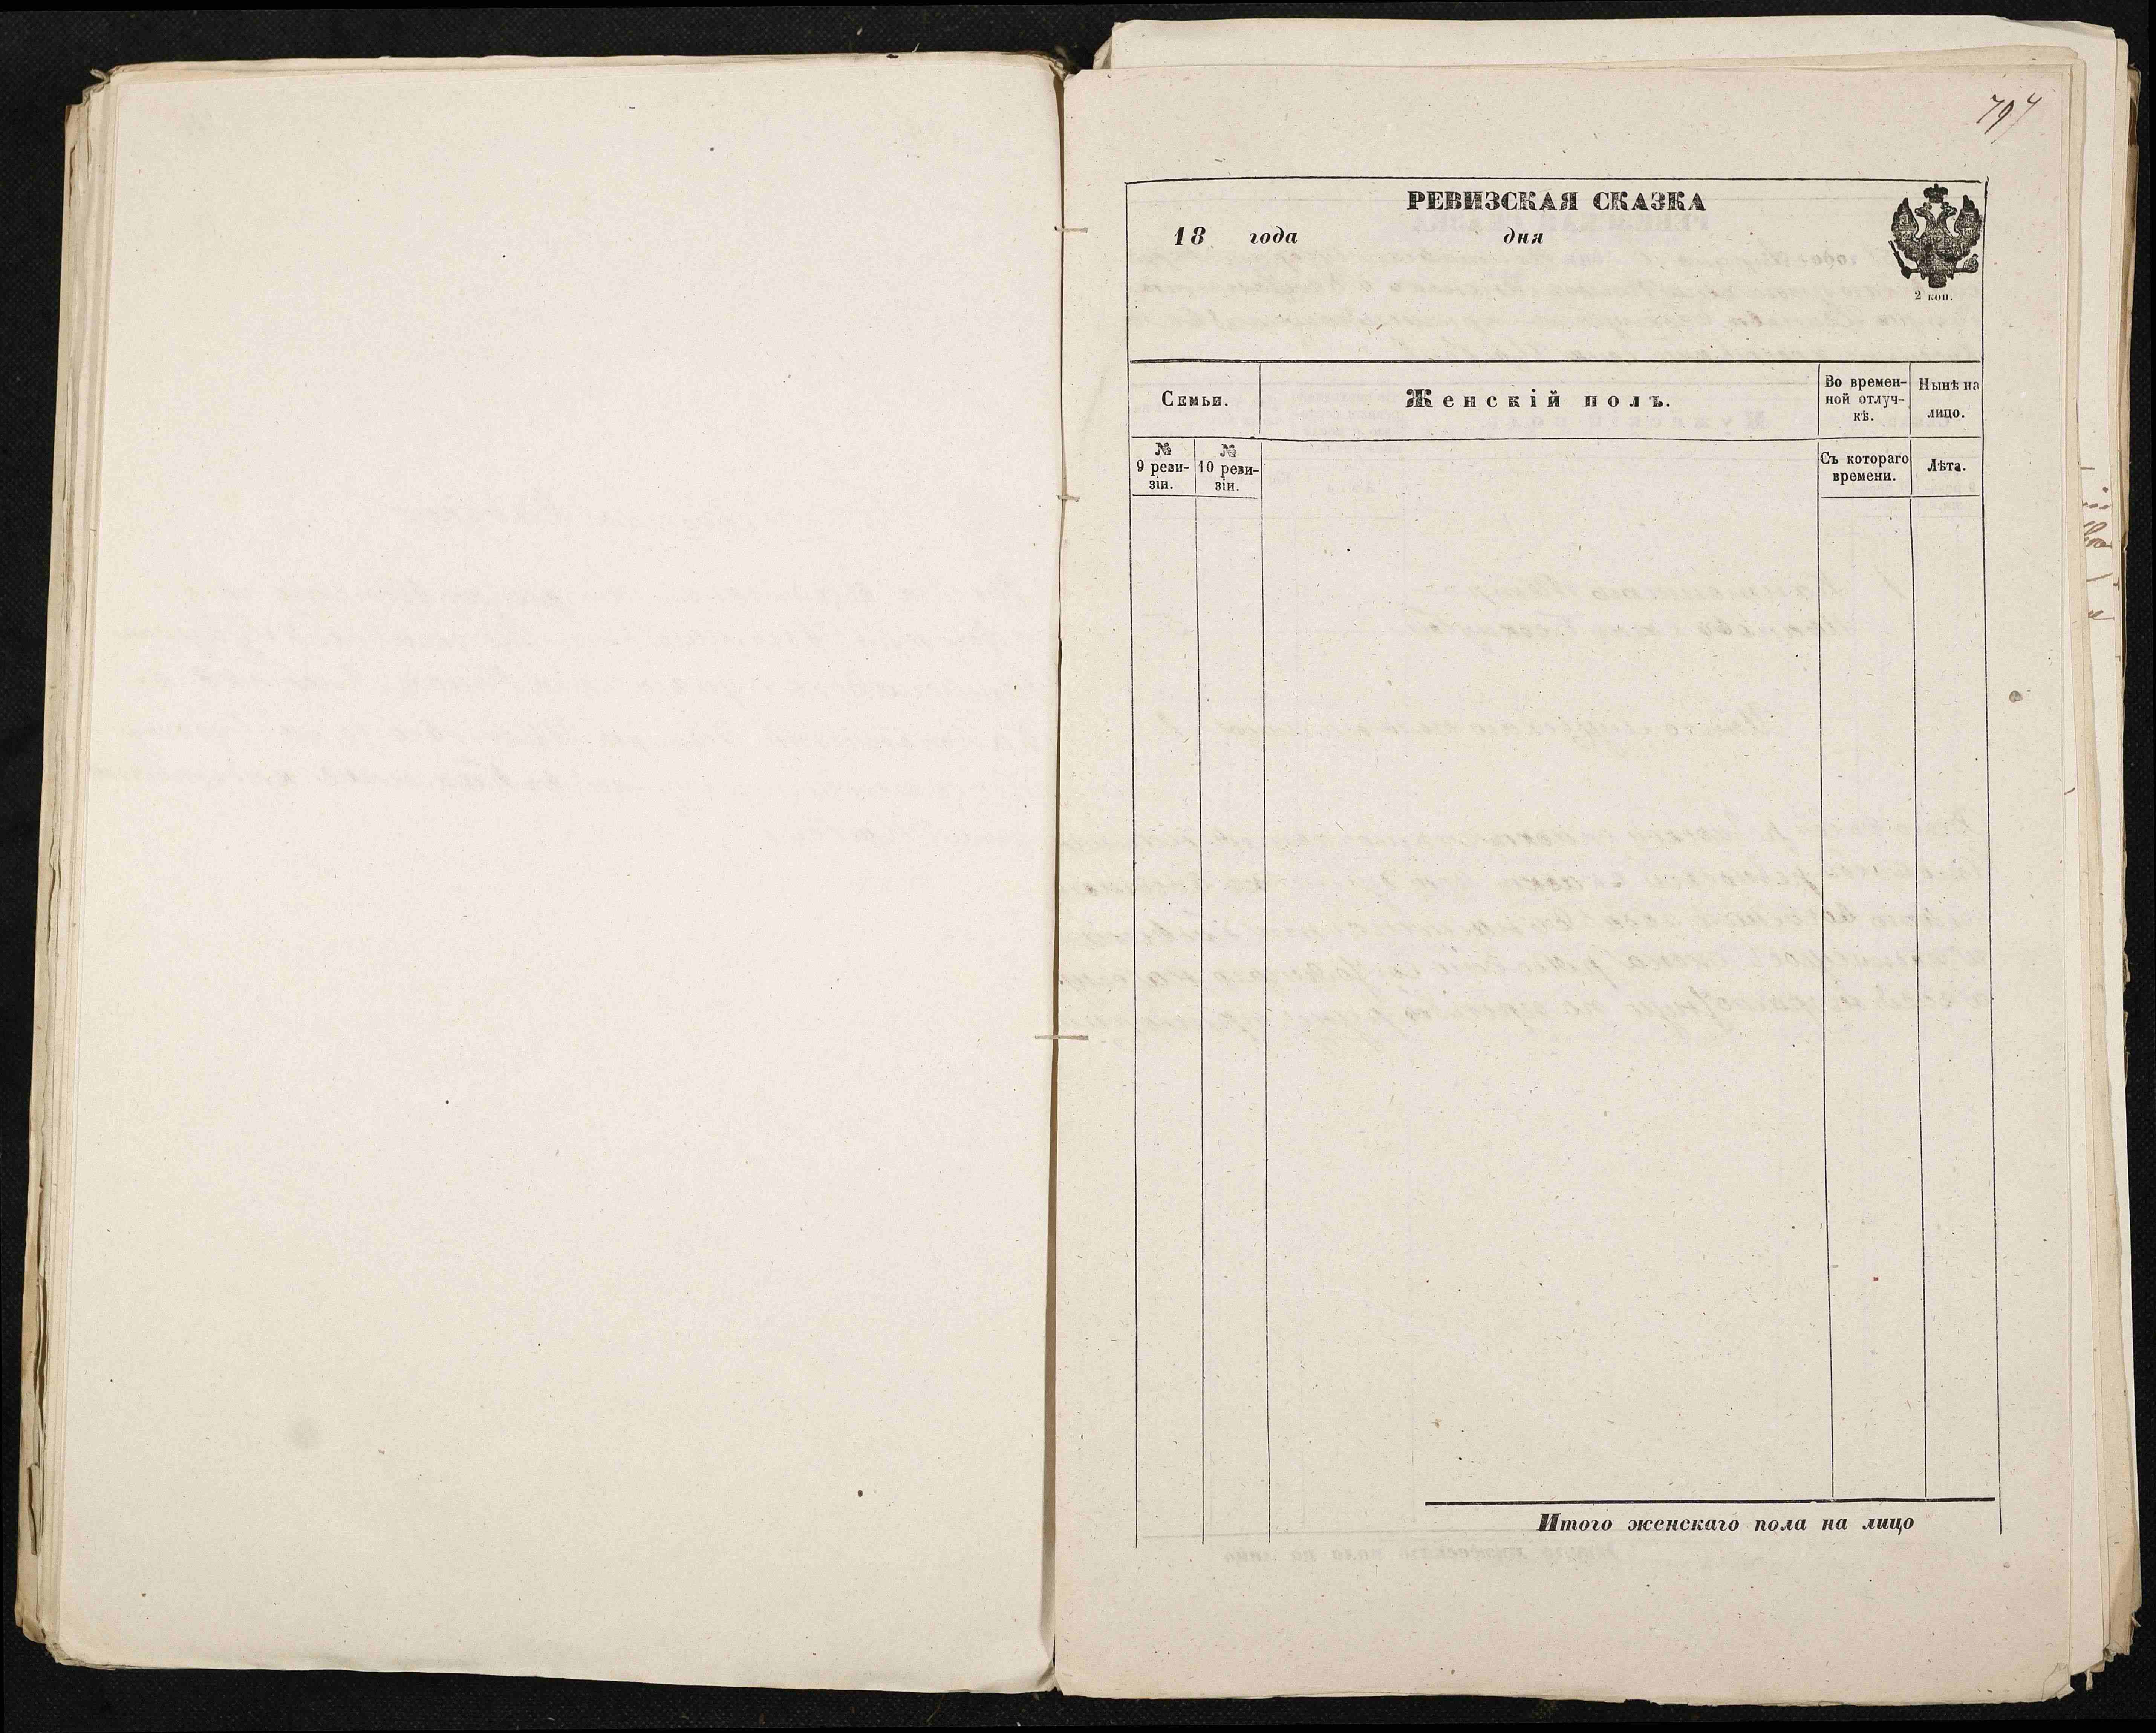 797
РЕВИЗСКАЯ СКАЗКА
18 года дня
2 коп.
Семьи.
Женскій полъ.
Во времен-
ной отлуч-
кѣ.
Нынѣ на
лицо.
№
9 реви-
зіи.
№
10 реви-
зіи.
Съ котораго
времени.
Лѣта.
Итого женскаго пола на лицо